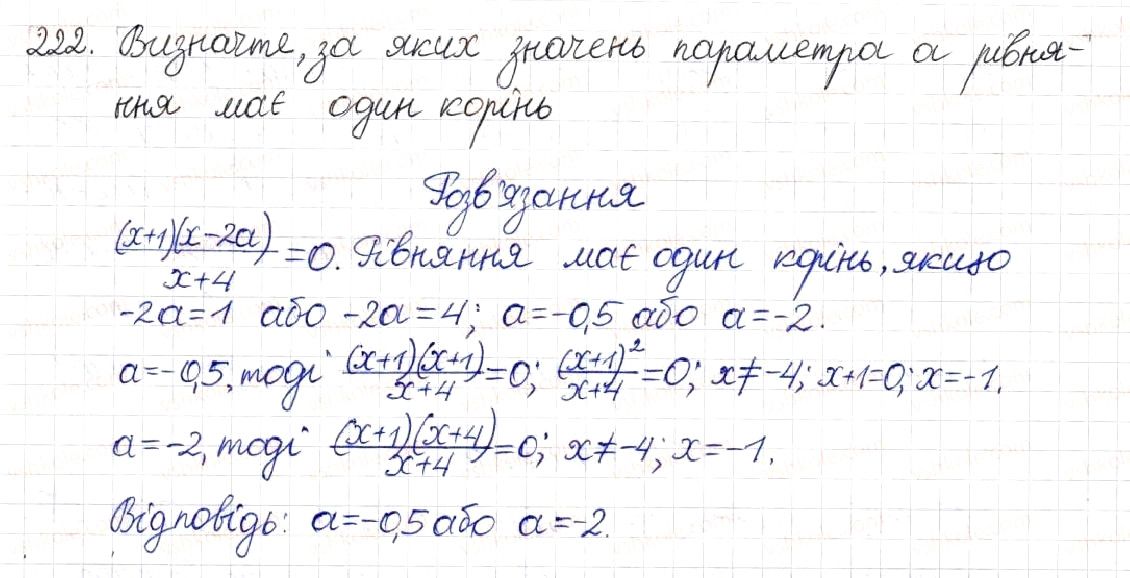 222. Визначте, за яких значень параметра а рівня-
ння має один корінь
Розв'язання
(x+1)(x-2a)/x+4 =0. Рівняння має один корінь, якщо
-2a=1 або -2a=4; a=-0,5 або a=-2.
a=-0,5, тоді (x+1)(x+1)/x+4 =0; (x+1)²/x+4 =0; x≠-4; x+1=0; x=-1.
a=-2, тоді (x+1)(x+4)/x+4 =0; x≠-4; x=-1.
Відповідь: a=-0,5 або a=-2.